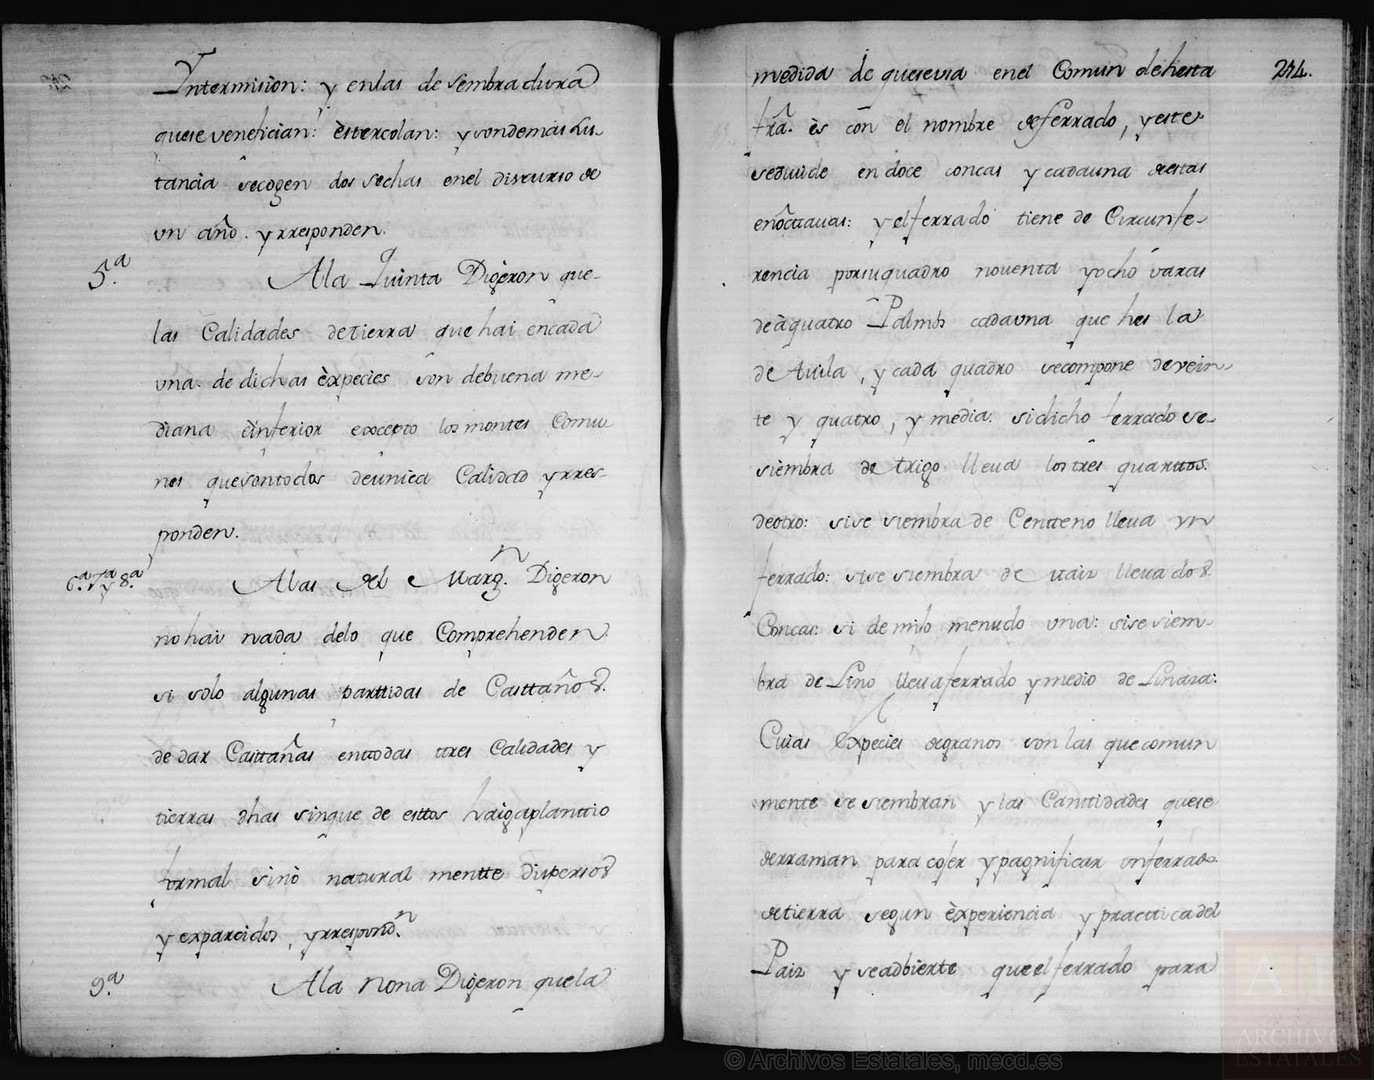 Yntermision: y enlas de sembradura
quese venefician: èstercolan: y sondemàs sus-
tancia secogen dos sechas enel discurso de
un año. yrresponden.
5.ª Ala Quinta Digeron que-
las Calidades detierra que hai encada
una de dichas èxpecies son debuena me-
diana èinferior excepto los montes Comu
nes quesontodos deunica Calidad yrres-
ponden.
6.ª 7.ª y 8.ª Alas del Marg.n Digeron
nohai nada delo que Comprehenden
si solo algunas parttidas de Casttaños.
dedar Casttañas enttodas ttres Calidades y
tierras dhas sinque de esttos haigaplanttio
formal sinò natural mentte dispersos
y exparcidos, yrrespond.n
9.ª Ala Nona Digeron quela
medida de queseusa enel Comun dehesta 274.
trã. ès con el nombre deferrado, yeste
sedivide en doce concas y cadauna destas
enòcttauas: y elferrado tiene de Circunfe-
rencia porsuquadro noventa yocho varas
deàquatro Palmos cadauna que hes la
de Auila, y cada quadro secompone devein-
te y quatro, y media: sidicho ferrado se-
siembra de trigo lleva los tres quarttos.
deotro: sise siembra de Centteno lleva un
ferrado: sise siembra de maiz lleva dos.
Concas: si de milo menudo una: sise siem-
bra de Lino llevaferrado ymedio de Linaza:
Cuias èxpecies degranos son las que comun
mente se siembran y las Canttidades quese
derraman para cojer ypagnificar unferrado.
detierra segun èxperiencia y practticadel
Paiz y seadbierte queelferrado para
© Archivos Estatales, mecd.es
ARCHIVOS
ESTATALES